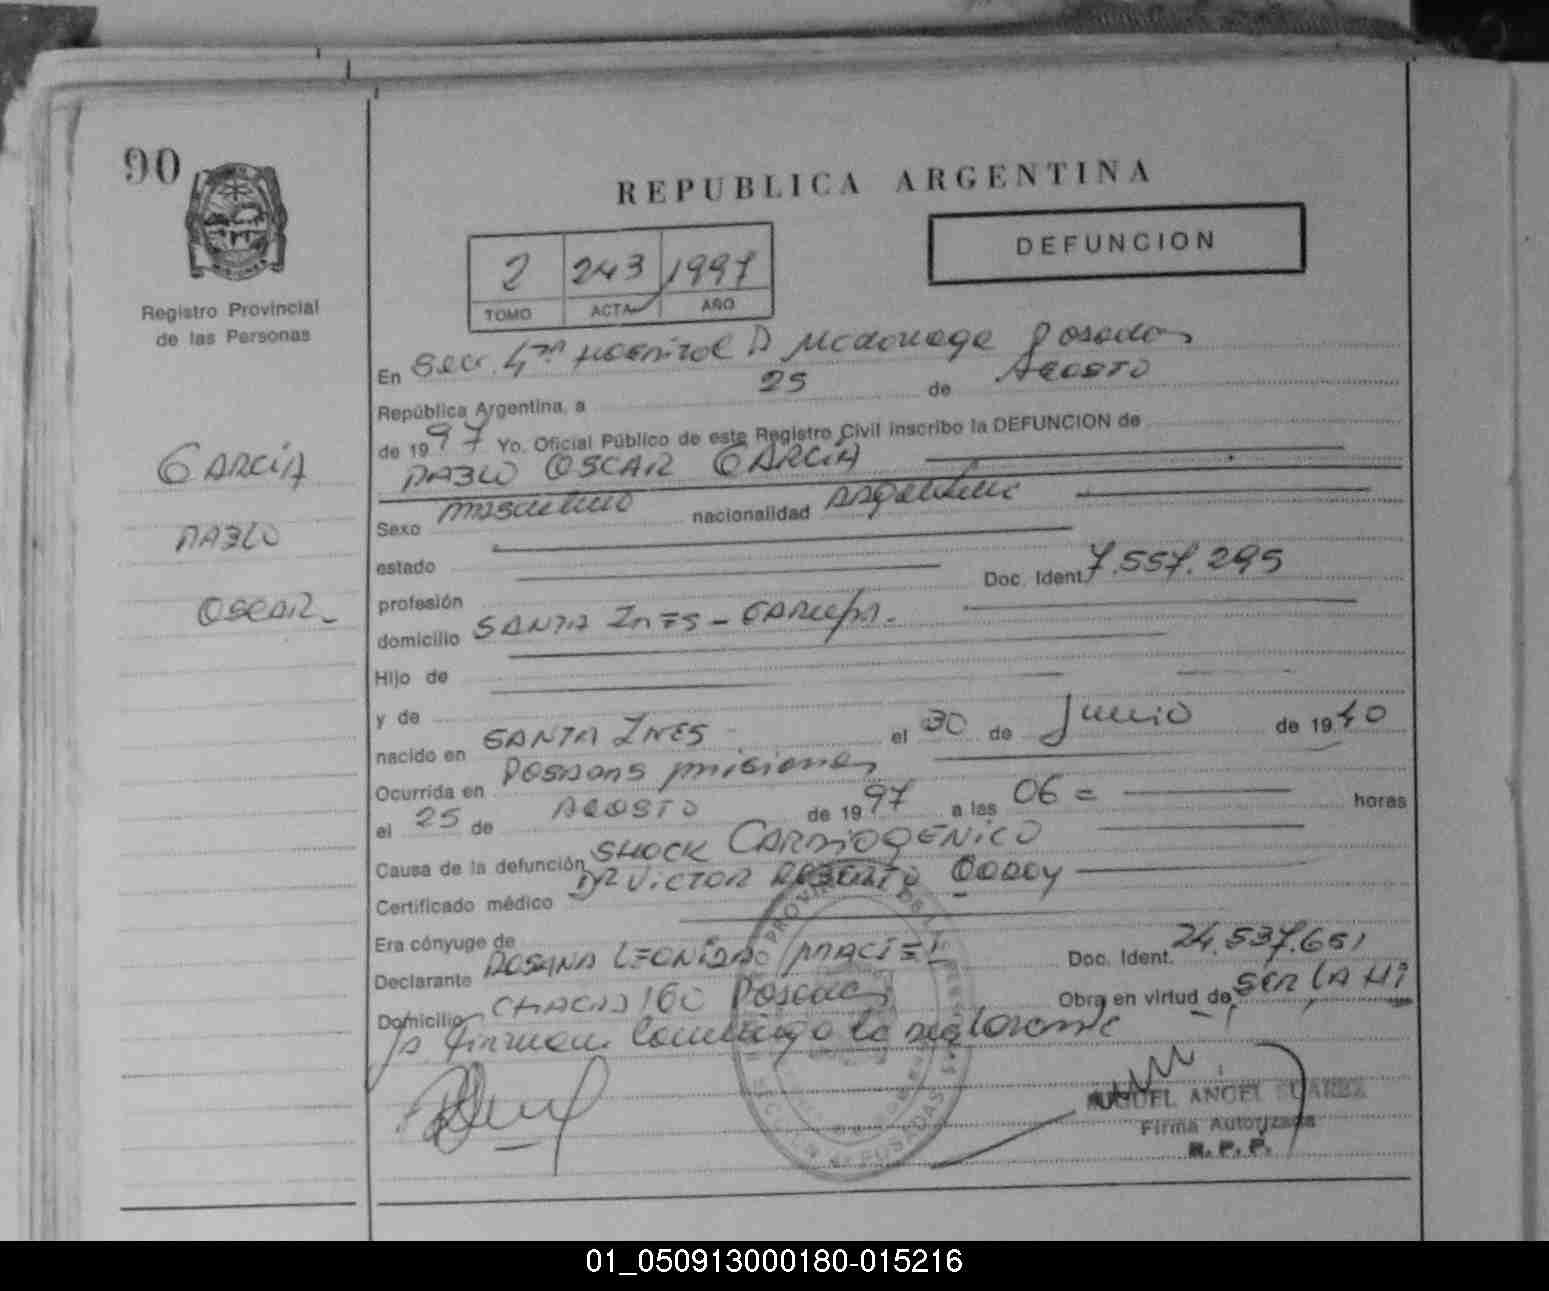 90
REPUBLICA ARGENTINA
DEFUNCION
2 243 1997
TOMO ACTA AÑO
Registro Provincial
de las Personas
En Secc. 4ta Hospital D Madariaga Posadas
República Argentina, a 25 de Agosto
de 1997 Yo, Oficial Público de este Registro Civil inscribo la DEFUNCION de
PABLO OSCAR GARCIA
GARCIA
PABLO
OSCAR
Sexo masculino nacionalidad Argentino
estado
profesión Doc. Ident. 7.557.295
domicilio SANTA INES - GARUPA.
Hijo de
y de
nacido en SANTA INES el 30 de Junio de 1940
Ocurrida en Posadas Misiones
el 25 de AGOSTO de 1997 a las 06 = horas
Causa de la defunción SHOCK CARDIOGENICO
Certificado médico Dr VICTOR ROBERTO GODOY
Era cónyuge de
Declarante ROSANA LEONIDA MACIEL Doc. Ident. 24.537.651
Domicilio CHACRA 160 Posadas Obra en virtud de SER LA HIJA
firman conmigo la declarante
MIGUEL ANGEL SUAREZ
Firma Autorizada
R. P. P.
01_050913000180-015216